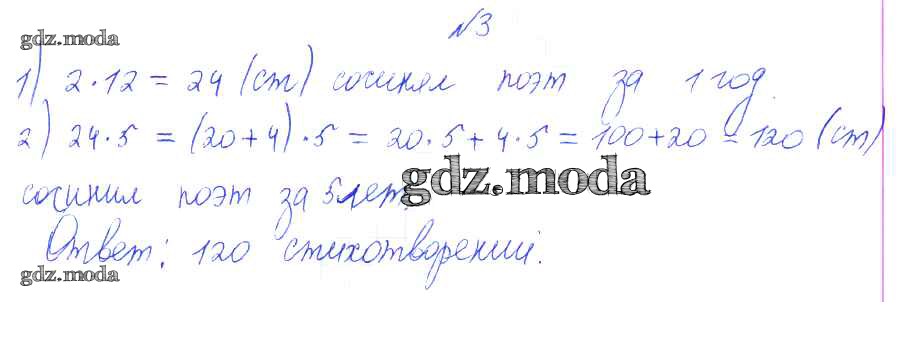 №3
gdz.moda
1) 2·12 = 24 (ст) сочинял поэт за 1 год.
2) 24·5 = (20+4)·5 = 20·5+4·5 = 100+20 = 120 (ст)
gdz.moda
сочинил поэт за 5 лет.
Ответ: 120 стихотворений.
gdz.moda